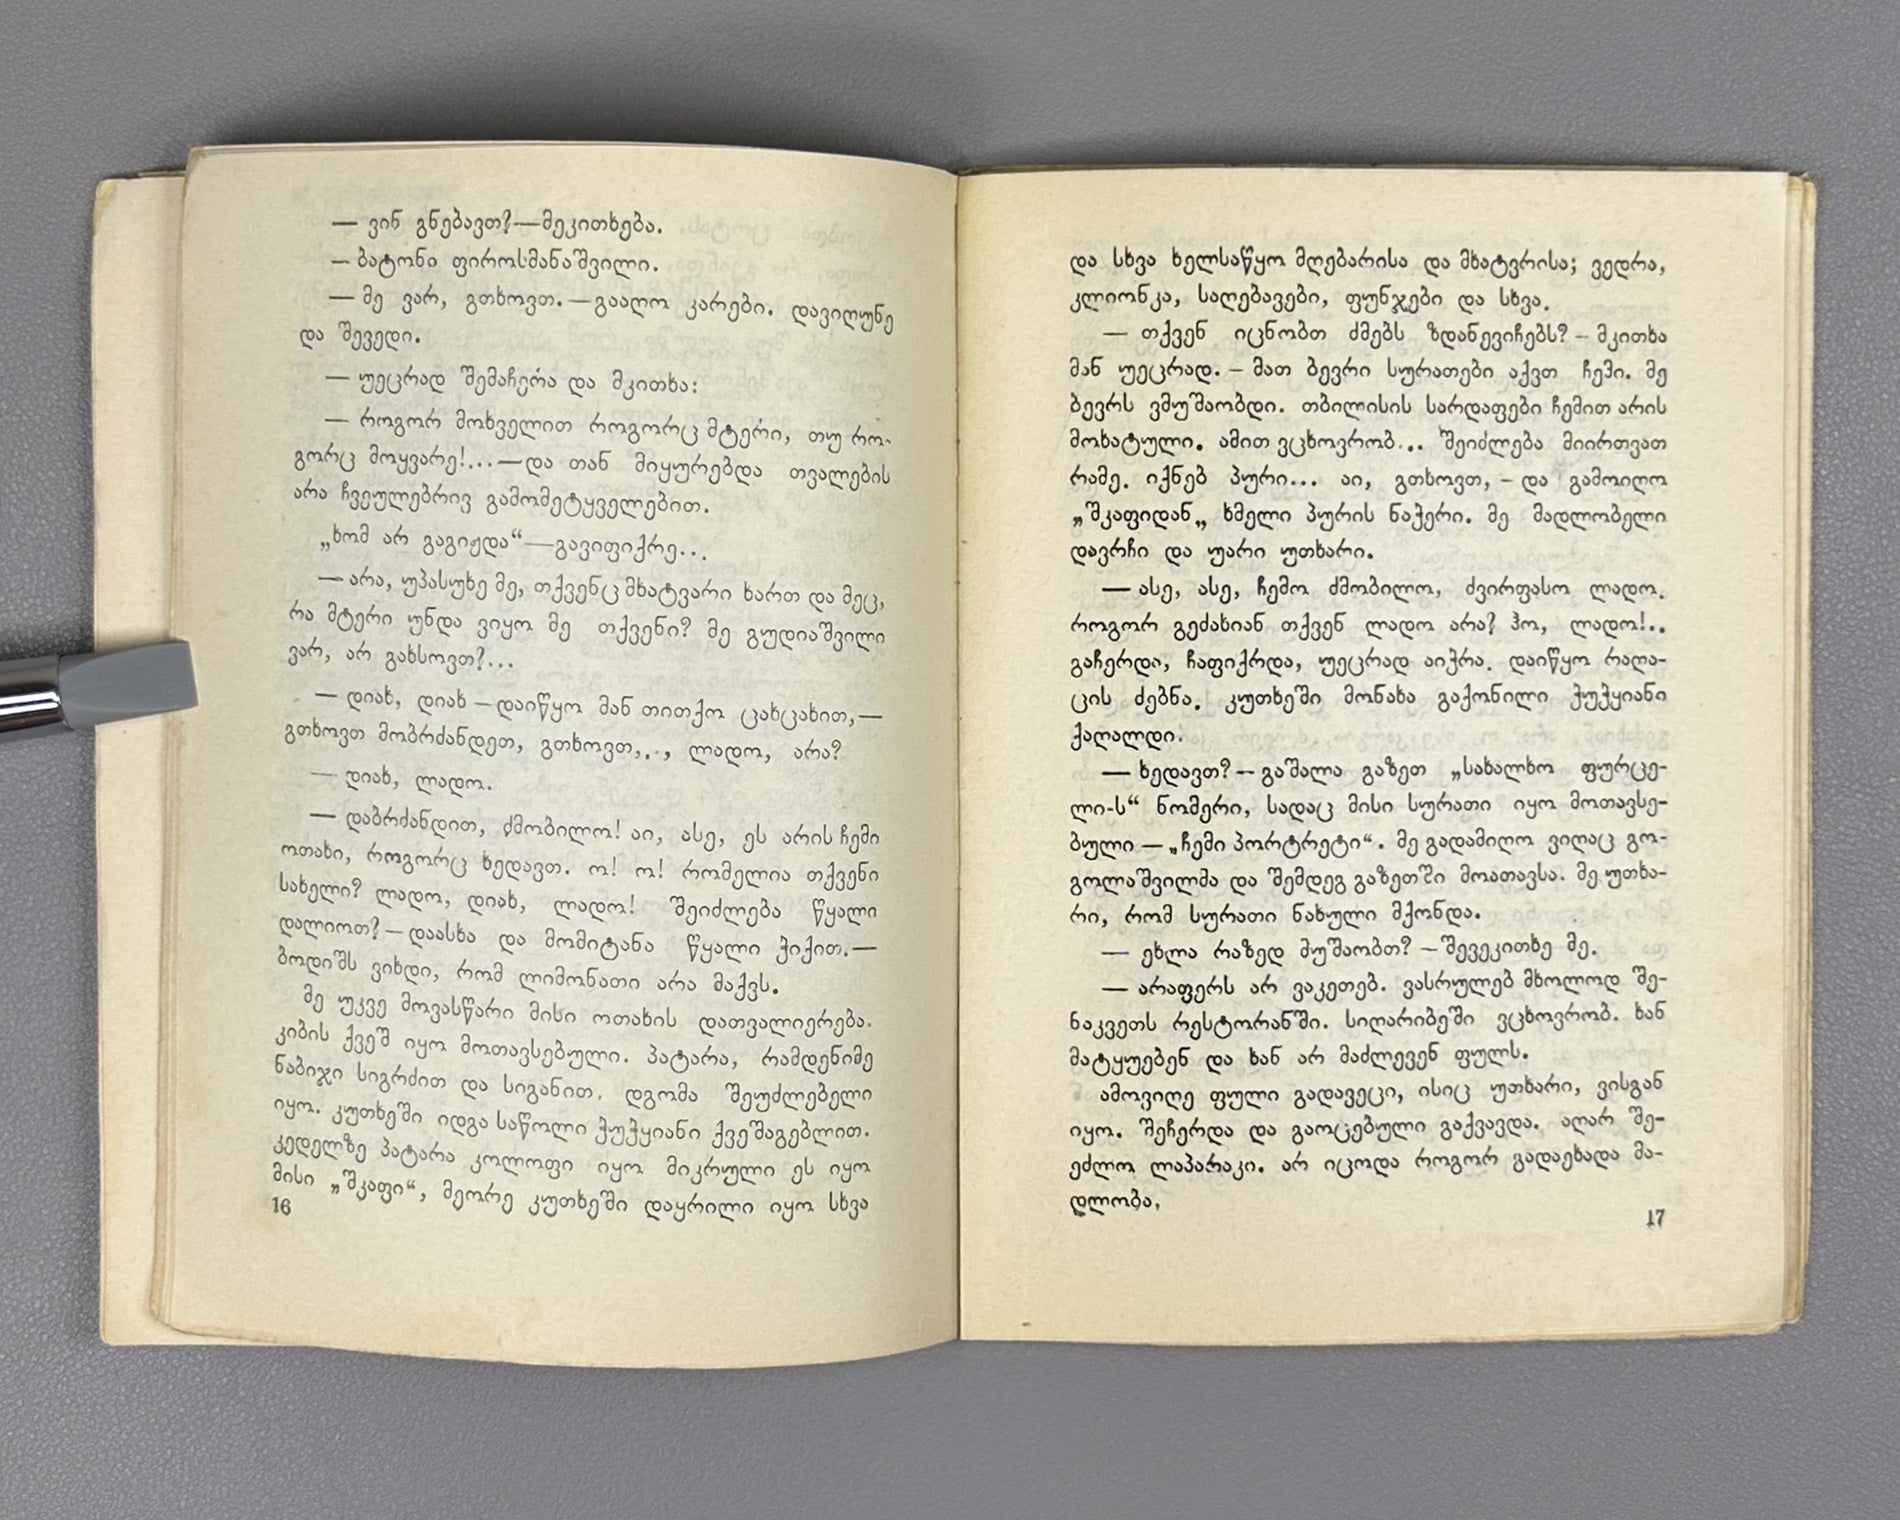 — ვინ გნებავთ?—მეკითხება.
— ბატონი ფიროსმანაშვილი.
— მე ვარ, გთხოვთ. — გააღო კარები. დავიღუნე
და შევედი.
— უეცრად შემაჩერა და მკითხა:
— როგორ მოხველით როგორც მტერი, თუ რო-
გორც მოყვარე!...—და თან მიყურებდა თვალების
არა ჩვეულებრივ გამომეტყველებით.
„ხომ არ გაგიჟდა“—გავიფიქრე...
— არა, უპასუხე მე, თქვენც მხატვარი ხართ და მეც,
რა მტერი უნდა ვიყო მე თქვენი? მე გუდიაშვილი
ვარ, არ გახსოვთ?...
— დიახ, დიახ — დაიწყო მან თითქო ცახცახით,—
გთხოვთ მობრძანდეთ, გთხოვთ,.., ლადო, არა?
— დიახ, ლადო.
— დაბრძანდით, ძმობილო! აი, ასე, ეს არის ჩემი
ოთახი, როგორც ხედავთ. ო! ო! რომელია თქვენი
სახელი? ლადო, დიახ, ლადო! შეიძლება წყალი
დალიოთ? — დაასხა და მომიტანა წყალი ჭიქით.—
ბოდიშს ვიხდი, რომ ლიმონათი არა მაქვს.
მე უკვე მოვასწარი მისი ოთახის დათვალიერება.
კიბის ქვეშ იყო მოთავსებული. პატარა, რამდენიმე
ნაბიჯი სიგრძით და სიგანით. დგომა შეუძლებელი
იყო. კუთხეში იდგა საწოლი ჭუჭყიანი ქვეშაგებლით.
კედელზე პატარა კოლოფი იყო მიკრული ეს იყო
მისი „შკაფი“, მეორე კუთხეში დაყრილი იყო სხვა
16
და სხვა ხელსაწყო მღებარისა და მხატვრისა; ვედრა,
კლიონკა, საღებავები, ფუნჯები და სხვა.
— თქვენ იცნობთ ძმებს ზდანევიჩებს? – მკითხა
მან უეცრად. – მათ ბევრი სურათები აქვთ ჩემი. მე
ბევრს ვმუშაობდი. თბილისის სარდაფები ჩემით არის
მოხატული. ამით ვცხოვრობ... შეიძლება მიირთვათ
რამე. იქნებ პური... აი, გთხოვთ, – და გამოიღო
„შკაფიდან„ ხმელი პურის ნაჭერი. მე მადლობელი
დავრჩი და უარი უთხარი.
— ასე, ასე, ჩემო ძმობილო, ძვირფასო ლადო.
როგორ გეძახიან თქვენ ლადო არა? ჰო, ლადო!..
გაჩერდა, ჩაფიქრდა, უეცრად აიჭრა. დაიწყო რაღა-
ცის ძებნა. კუთხეში მონახა გაქონილი ჭუჭყიანი
ქაღალდი.
— ხედავთ? — გაშალა გაზეთ „სახალხო ფურცე-
ლი-ს“ ნომერი, სადაც მისი სურათი იყო მოთავსე-
ბული — „ჩემი პორტრეტი“. მე გადამიღო ვიღაც გო-
გოლაშვილმა და შემდეგ გაზეთში მოათავსა. მე უთხა-
რი, რომ სურათი ნახული მქონდა.
— ეხლა რაზედ მუშაობთ? — შევეკითხე მე.
— არაფერს არ ვაკეთებ. ვასრულებ მხოლოდ შე-
ნაკვეთს რესტორანში. სიღარიბეში ვცხოვრობ. ხან
მატყუებენ და ხან არ მაძლევენ ფულს.
ამოვიღე ფული გადავეცი, ისიც უთხარი, ვისგან
იყო. შეჩერდა და გაოცებული გაქვავდა. აღარ შე-
ეძლო ლაპარაკი. არ იცოდა როგორ გადაეხადა მა-
დლობა.
17